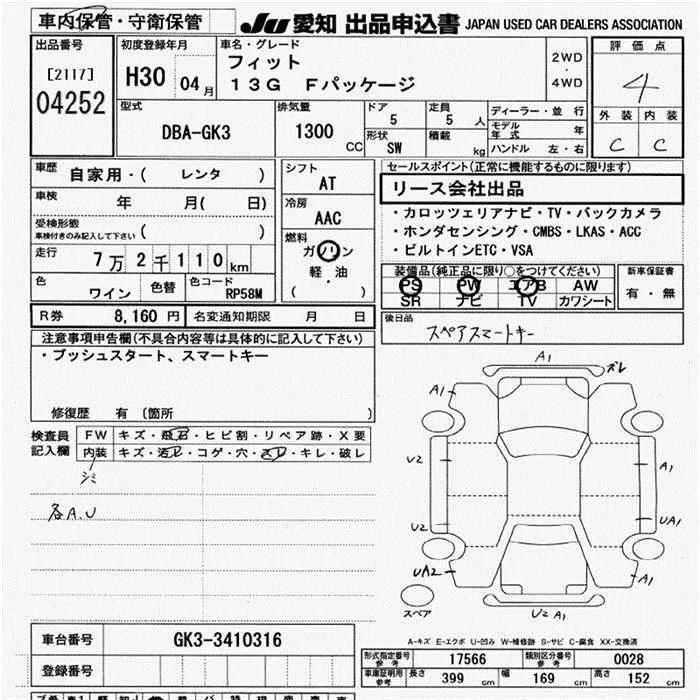 車内保管・守衛保管
JU 愛知 出品申込書 JAPAN USED CAR DEALERS ASSOCIATION
出品番号
[2117]
04252
初度登録年月
H30 04 月
車名・グレード
フィット
13G Fパッケージ
2WD
・
4WD
評価点
4
外装 内装
C C
型式
DBA-GK3
排気量
1300 CC
ドア
5
定員
5 人
形状
SW
積載
kg
ディーラー・並行
モデル年式 年
ハンドル 左・右
車歴
自家用・( レンタ )
車検
年 月( 日)
受検形態
車検付きのみ記入して下さい ( )
走行
7万2千110 km
色
ワイン
色替
色コード
RP58M
シフト
AT
冷房
AAC
燃料
ガソリン
軽・油
( )
セールスポイント(正常に機能するものに限ります)
リース会社出品
・カロッツェリアナビ・TV・バックカメラ
・ホンダセンシング・CMBS・LKAS・ACC
・ビルトインETC・VSA
装備品(純正品に限り〇をつけてください)
PS PW エアB AW
SR ナビ TV カワシート
新車保証書
有・無
R券 8,160 円 名変通知期限 月 日
後日品
スペアスマートキー
注意事項申告欄(不具合内容等は具体的に記入して下さい)
・プッシュスタート、スマートキー
修復歴 有 (箇所 )
検査員
記入欄
FW キズ・飛石・ヒビ割・リペア跡・X要
内装 キズ・汚レ・コゲ・穴・スレ・キレ・破レ
シミ
各A.U
A1
ズレ
A1
U2
A1
U2
UA1
UA2
A1
スペア
U2 A1
A-キズ E-エクボ U-凹み W-補修跡 S-サビ C-腐食 XX-交換済
車台番号 GK3-3410316
登録番号
形式指定番号
参考
17566
類別区分番号
参考
0028
車庫証明用
参考
長さ 399 cm 幅 169 cm 高さ 152 cm